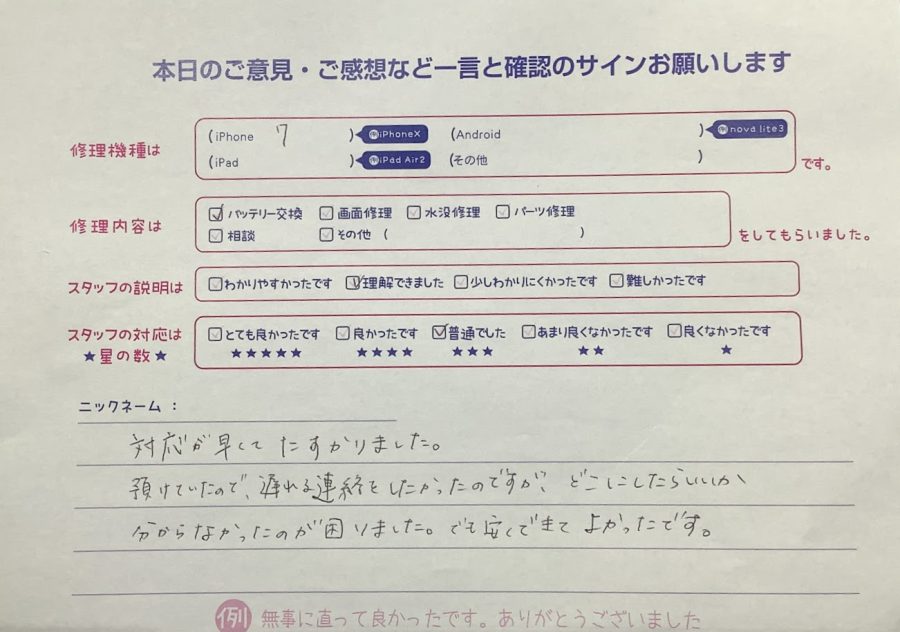 本日のご意見・ご感想など一言と確認のサインお願いします
修理機種は
(iPhone 7 ) 例iPhoneX (Android ) 例nova lite3
(iPad ) 例iPad Air2 (その他 ) です。
修理内容は
☑バッテリー交換 □画面修理 □水没修理 □パーツ修理
□相談 □その他 ( ) をしてもらいました。
スタッフの説明は □わかりやすかったです ☑理解できました □少しわかりにくかったです □難しかったです
スタッフの対応は □とても良かったです □良かったです ☑普通でした □あまり良くなかったです □良くなかったです
★星の数★ ★★★★★ ★★★★ ★★★ ★★ ★
ニックネーム：
対応が早くてたすかりました。
預けていたので、遅れる連絡をしたかったのですが、どこにしたらいいか
分からなかったのが困りました。でも安くできてよかったです。
例 無事に直って良かったです。ありがとうございました